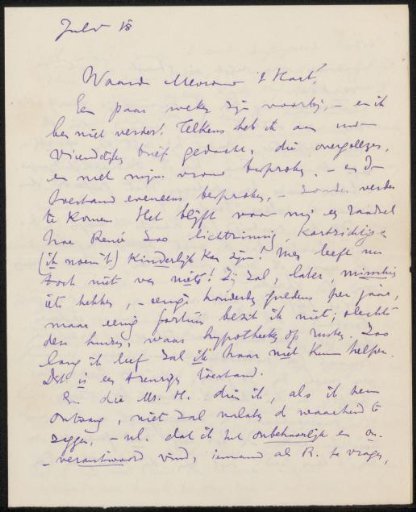 July 18
Waarde Mevrouw 't Hart,
Een paar weken zijn voorbij, – en ik
ben niet verder! Telkens heb ik aan uw
vriendelijke brief gedacht, die overgelezen,
en met mijn vrouw besproken, – en de
toestand eveneens besproken, – zonder verder
te komen. Het blijft voor mij een raadsel
hoe Renée zoo lichtzinnig, kortzichtig &
(ik noem 't) kinderlijk kan zijn! Men leeft nu
toch niet van niets! Zij zal, later, misschien
iets hebben, – eenige honderden guldens per jaar,
maar eenig fortuin bezit ik niet, slechts
den huis, waar hypotheek op rust. Zoo
lang ik leef zal ik haar niet kunnen helpen.
Dat is een treurige toestand.
En die Mr. H. dien ik, als ik hem
ontvang, niet zal nalaten de waarheid te
zeggen, – nl. dat ik het onbehoorlijk en on-
verantwoord vind, iemand als R. te vragen,